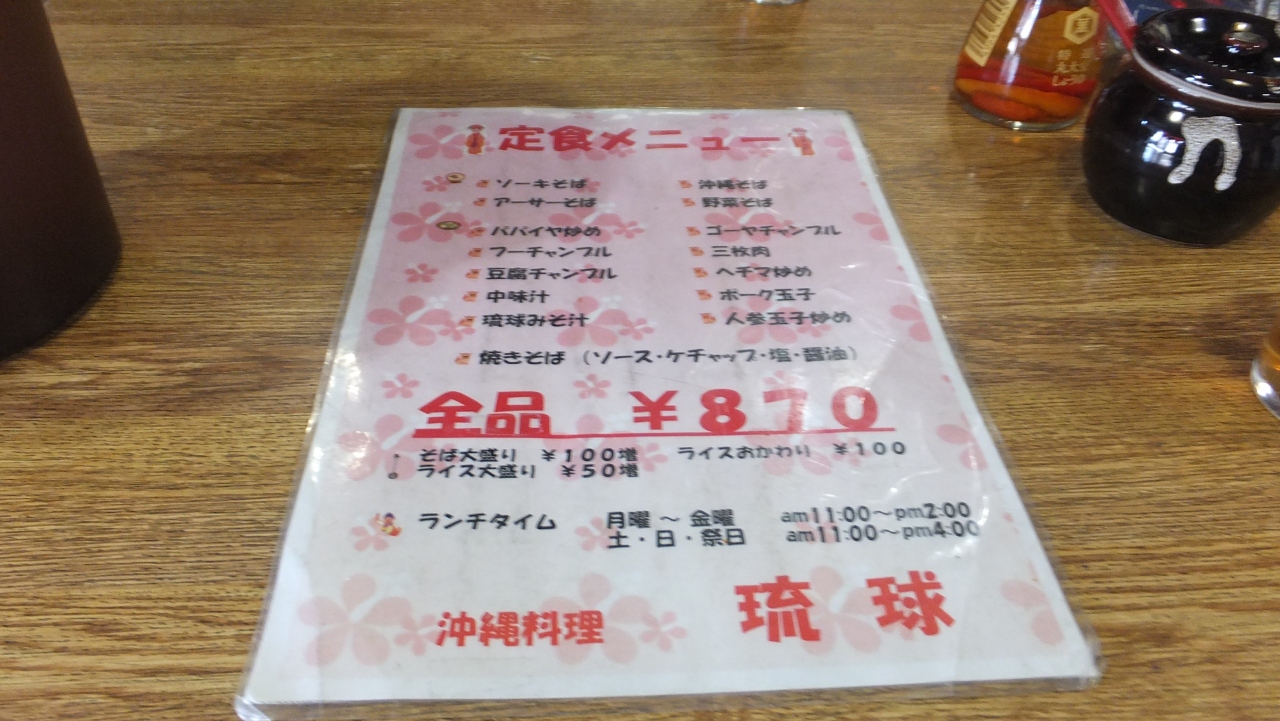 定食メニュー
ソーキそば 沖縄そば
アーサーそば 野菜そば
パパイヤ炒め ゴーヤチャンプル
フーチャンプル 三枚肉
豆腐チャンプル ヘチマ炒め
中味汁 ポーク玉子
琉球みそ汁 人参玉子炒め
焼きそば (ソース・ケチャップ・塩・醤油)
全品 ¥870
そば大盛り ¥100増 ライスおかわり ¥100
ライス大盛り ¥50増
ランチタイム 月曜 ~ 金曜 am11:00~pm2:00
土・日・祭日 am11:00~pm4:00
沖縄料理 琉球